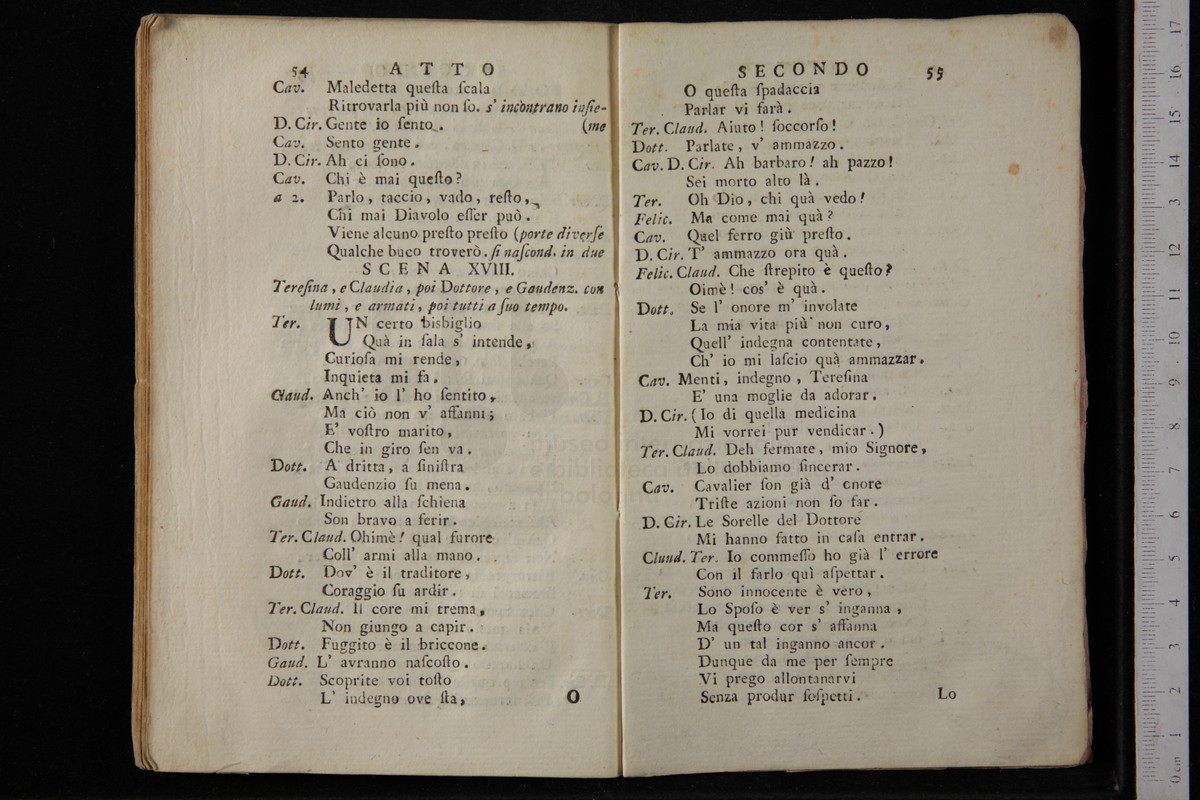 54 ATTO
Cav. Maledetta queſta ſcala
Ritrovarla più non ſo. s' incontrano inſie-
D. Cir. Gente io ſento. (me
Cav. Sento gente.
D. Cir. Ah ci ſono.
Cav. Chi è mai queſto?
a 2. Parlo, taccio, vado, reſto,
Chi mai Diavolo eſſer può.
Viene alcuno preſto preſto (porte diverſe
Qualche buco troverò. ſi naſcond. in due
SCENA XVIII.
Tereſina, e Claudia, poi Dottore, e Gaudenz. con
lumi, e armati, poi tutti a ſuo tempo.
Ter. UN certo bisbiglio
Quà in ſala s' intende,
Curioſa mi rende,
Inquieta mi fa.
Claud. Anch' io l' ho ſentito,
Ma ciò non v' affanni;
E' voſtro marito,
Che in giro ſen va.
Dott. A dritta, a ſiniſtra
Gaudenzio fu mena.
Gaud. Indietro alla ſchiena
Son bravo a ferir.
Ter. Claud. Ohimè! qual furore
Coll' armi alla mano.
Dott. Dov' è il traditore,
Coraggio fu ardir.
Ter. Claud. Il core mi trema,
Non giungo a capir.
Dott. Fuggito è il briccone.
Gaud. L' avranno naſcoſto.
Dott. Scoprite voi toſto
L' indegno ove ſta,
O
SECONDO 55
O queſta ſpadaccia
Parlar vi farà.
Ter. Claud. Aiuto! ſoccorſo!
Dott. Parlate, v' ammazzo.
Cav. D. Cir. Ah barbaro! ah pazzo!
Sei morto alto là.
Ter. Oh Dio, chi quà vedo!
Felic. Ma come mai quà?
Cav. Quel ferro giù preſto.
D. Cir. T' ammazzo ora quà.
Felic. Claud. Che ſtrepito è queſto?
Oimè! cos' è quà.
Dott. Se l' onore m' involate
La mia vita più non curo,
Quell' indegna contentate,
Ch' io mi laſcio quà ammazzar.
Cav. Menti, indegno, Tereſina
E' una moglie da adorar.
D. Cir. (Io di quella medicina
Mi vorrei pur vendicar.)
Ter. Claud. Deh fermate, mio Signore,
Lo dobbiamo ſincerar.
Cav. Cavalier ſon già d' onore
Triſte azioni non ſo far.
D. Cir. Le Sorelle del Dottore
Mi hanno fatto in caſa entrar.
Claud. Ter. Io commeſſo ho già l' errore
Con il farlo quì aſpettar.
Ter. Sono innocente è vero,
Lo Spoſo è ver s' inganna,
Ma queſto cor s' affanna
D' un tal inganno ancor.
Dunque da me per ſempre
Vi prego allontanarvi
Senza produr ſoſpetti.
Lo